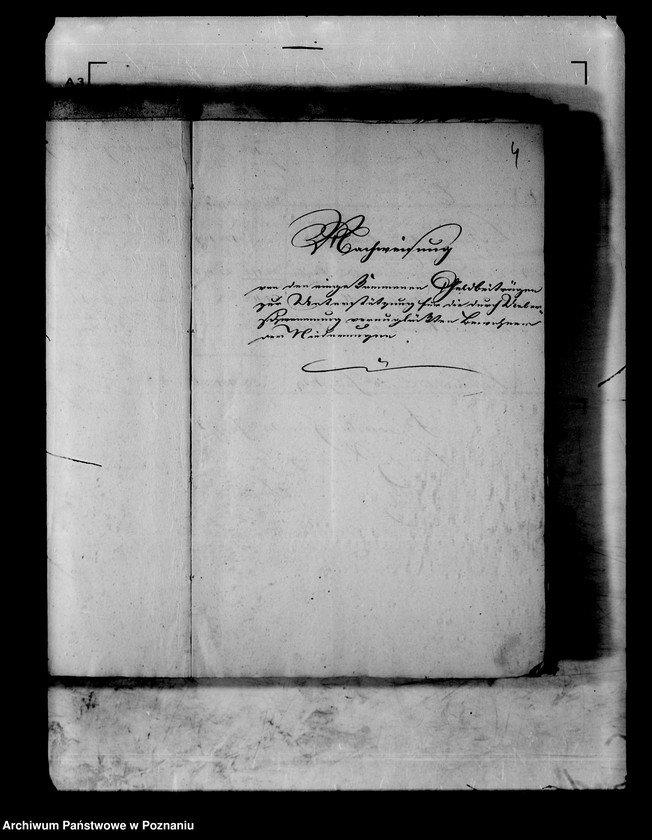 A3
4
Nachweisung
von den eingekommenen Geldbeiträgen
zur Unterstützung für die durch Ueber-
schwemmung verunglückten Bewohner
der Niederungen.
Archiwum Państwowe w Poznaniu